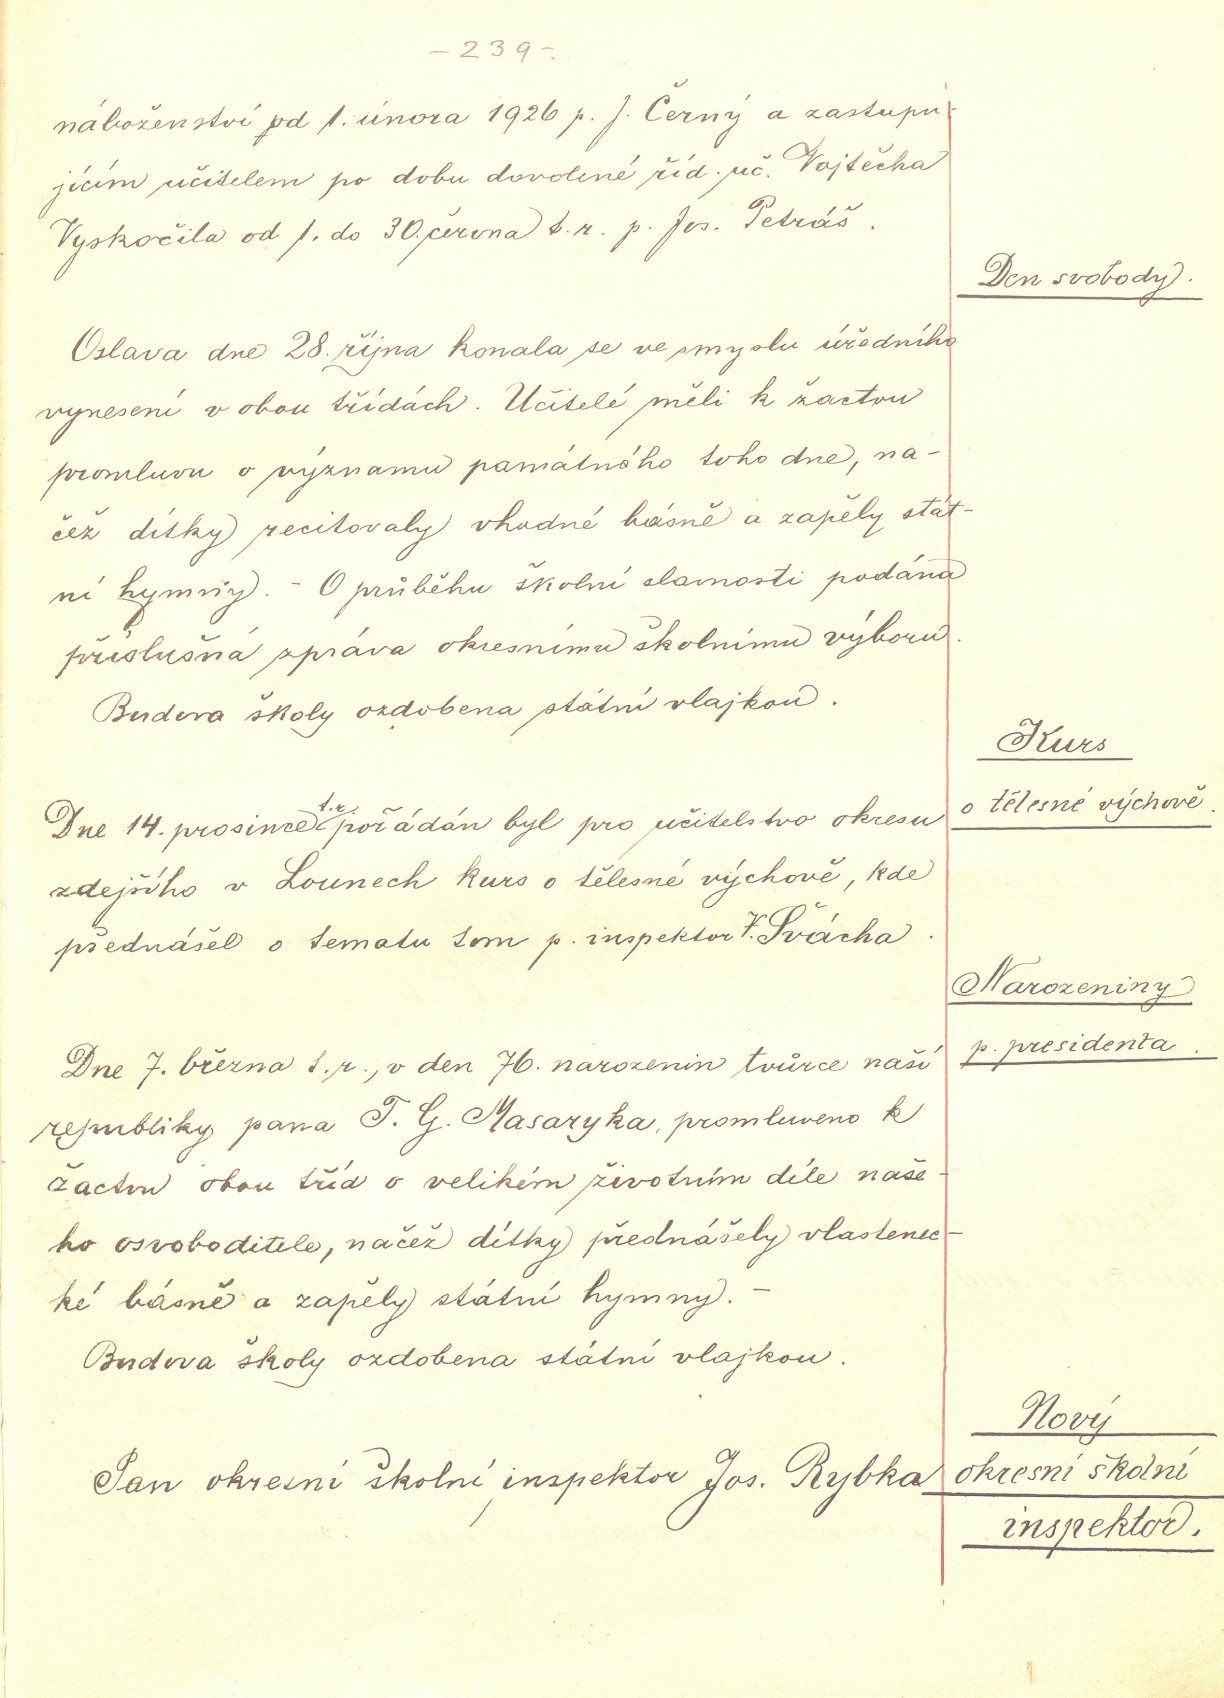 – 239 –.
náboženství od 1. února 1926 p. J. Černý a zastupu-
jícím učitelem po dobu dovolené říd. uč. Vojtěcha
Vyskočila od 1. do 30. června t. r. p. Jos. Petráš.
Den svobody.
Oslava dne 28. října konala se ve smyslu úředního
vynesení v obou třídách. Učitelé měli k žactvu
promluvu o významu památného toho dne, na-
čež dítky recitovaly vhodné básně a zapěly stát-
ní hymny. – O průběhu školní slavnosti podána
příslušná zpráva okresnímu školnímu výboru.
Budova školy ozdobena státní vlajkou.
Kurs
o tělesné výchově.
Dne 14. prosince t. r. pořádán byl pro učitelstvo okresu
zdejšího v Lounech kurs o tělesné výchově, kde
přednášel o tematu tom p. inspektor V. Švácha.
Narozeniny
p. presidenta.
Dne 7. března t. r., v den 76. narozenin tvůrce naší
republiky pana T. G. Masaryka, promluveno k
žactvu obou tříd o velikém životním díle naše-
ho osvoboditele, načež dítky přednášely vlastenec-
ké básně a zapěly státní hymny. –
Budova školy ozdobena státní vlajkou.
Nový
okresní školní
inspektor.
Pan okresní školní inspektor Jos. Rybka